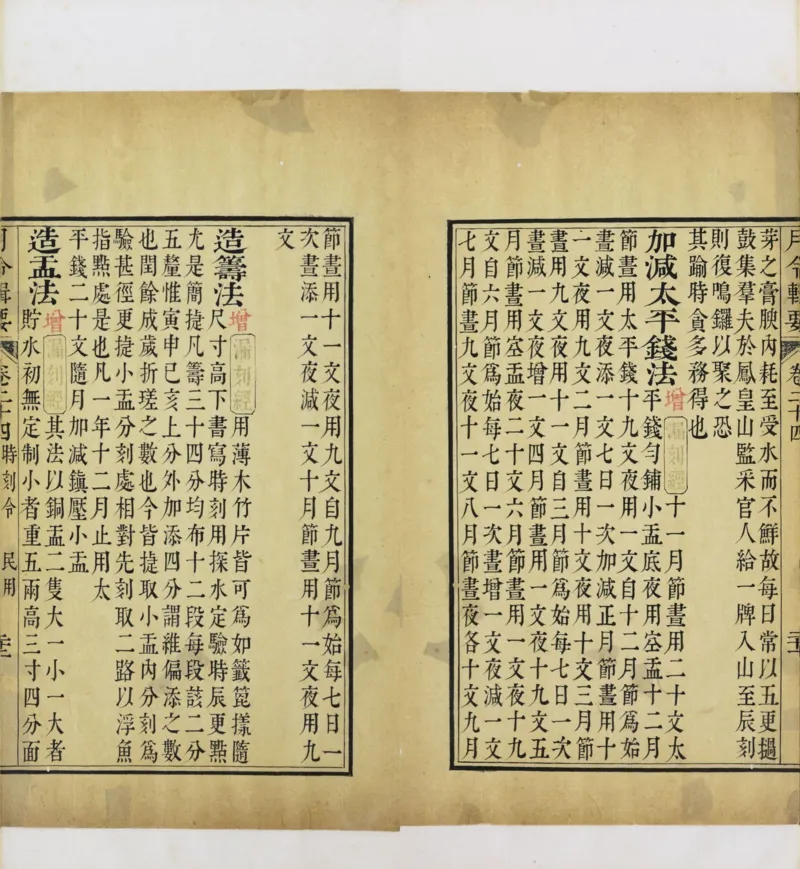 月令輯要 卷二十四
芽之膏腴內耗至受水而不鮮故每日常以五更撾
鼓集羣夫於鳳皇山監采官人給一牌入山至辰刻
則復鳴鑼以聚之恐
其踰時貪多務得也
加減太平錢法 增 漏刻經 十一月節晝用二十文太
平錢勻鋪小盂底夜用空盂十二月
節晝用太平錢十九文夜用一文自十二月節爲始
晝減一文夜添一文七日一次加減正月節晝用十
一文夜用九文二月節晝用十文夜用十文三月節
晝用九文夜用十一文自三月節爲始每七日一次
晝減一文夜增一文四月節晝用一文夜十九文五
月節晝用空盂夜二十文六月節晝用一文夜十九
文自六月節爲始每七日一次晝增一文夜減一文
七月節晝九文夜十一文八月節晝夜各十文九月
節晝用十一文夜用九文自九月節爲始每七日一
次晝添一文夜減一文十月節晝用十一文夜用九
文
造籌法 增 漏刻經 用薄木竹片皆可爲如籤箆㨾隨
尺寸高下書寫時刻用探水定驗時辰更點
尤是簡捷凡籌三十四分均布十二段每段該二分
五釐惟寅申巳亥上分外加添四分謂維偏添之數
也閏餘成歲折瑳之數也今皆提取小盂內分刻爲
驗甚徑更捷小盂分刻處相對先刻取二路以浮魚
指點處是也凡一年十二月止用太
平錢二十文隨月加減鎭壓小盂
造盂法 增 漏刻經 其法以銅盂二隻大一小一大者
貯水初無定制小者重五兩高三寸四分面
月令輯要 卷二十四 時刻令 民用